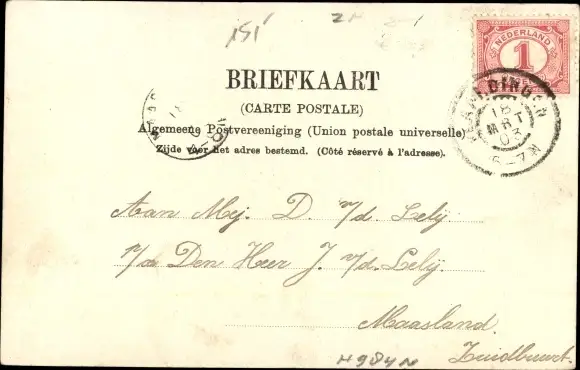 151
NEDERLAND
1
BRIEFKAART
(CARTE POSTALE)
Algemeene Postvereeniging (Union postale universelle)
Zijde voor het adres bestemd. (Côté réservé à l'adresse).
VLAARDINGEN
18
MRT
03
6-7N
Aan Mej. D. v/d. Lelij
p/a Den Heer J. v/d. Lelij
Maasland.
Zuidbuurt.
H984N